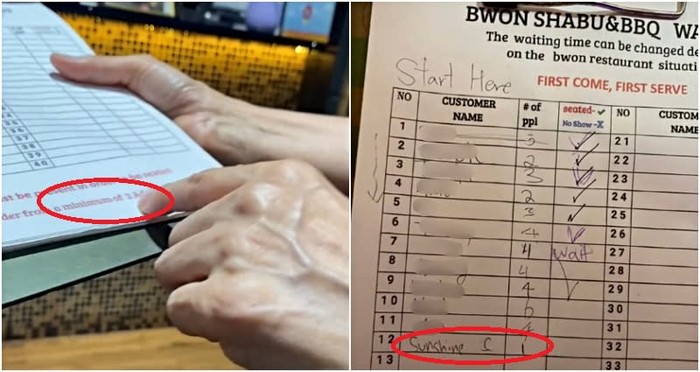 39
40
must be present in order to be seated
order from a minimum of 2
BWON SHABU&BBQ WA
The waiting time can be changed de
on the bwon restaurant situati
Start Here
FIRST COME, FIRST SERVE
NO CUSTOMER NAME # of ppl seated-✓ No Show-X NO CUSTOM NAM
1 3 ✓ 21
2 2 ✓ 22
3 3 ✓ 23
4 2 ✓ 24
5 3 ✓ 25
6 4 26
7 4 wait 27
8 4 28
9 4 29
10 30
11 31
12 Sunshine 1 32
13 33